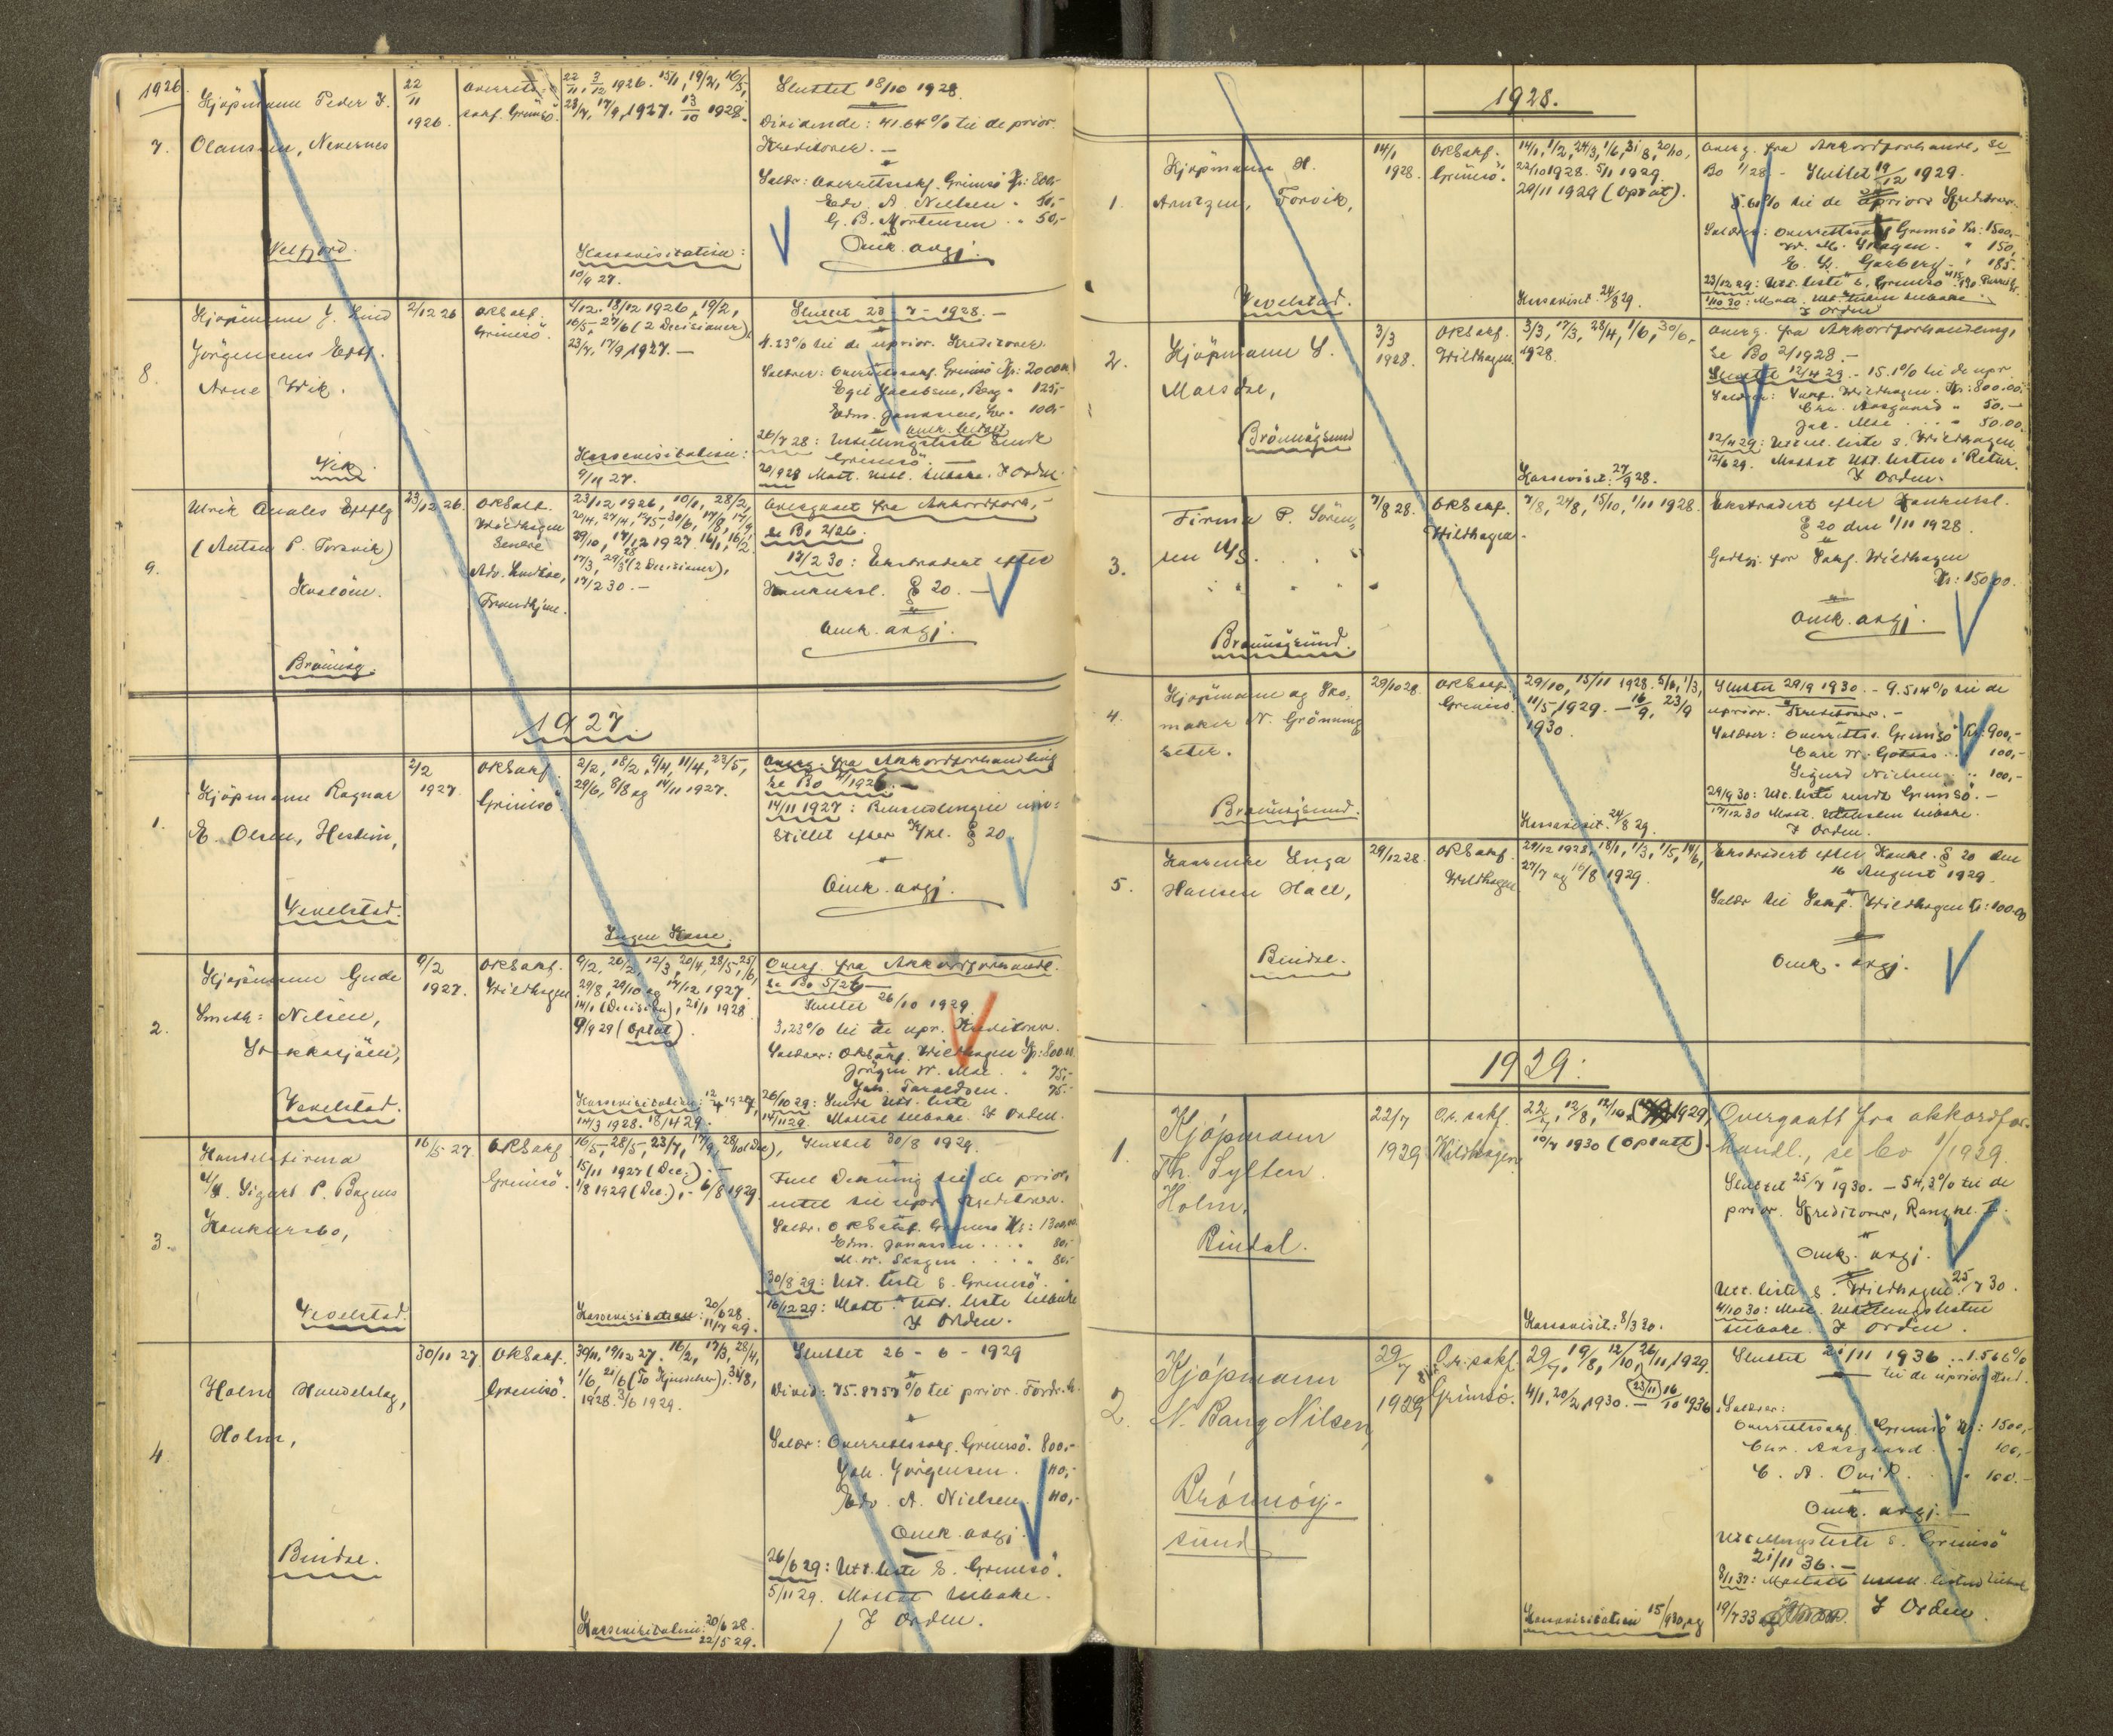 1926.
7.
Kjøpmann Peder K.
Olaussen, Nevernes
Velfjord.
22/11
1926.
Overretts-
sakf. Grimsö.
22/11, 3/12 1926. 15/1, 19/2, 16/5,
23/7, 17/9, 1927. 13/10 1928.
Kassavisitation:
10/9 27.
Sluttet 18/10 1928.
Dividende: 41.64% til de prior.
Kreditorer. —
Salær: Overrettssakf. Grimsö Kr: 800,-
Edv. A. Nielsen " 50,-
G. B. Mortensen " 50,-
Omk. avgj.
8.
Kjøpmann J. Lind
Jörgensens Eftf.
Arne Wik.
Vik.
2/12 26
ORSakf.
Grimsö.
2/12. 18/12 1926, 19/2,
16/5, 27/6 (2 Decisioner),
23/7, 17/9, 1927. —
Kassavisitation:
9/11 27.
Sluttet 23 - 7 - 1928. —
4.23% til de uprior. Kreditorer.
Salærer: Overrettssakf. Grimsö Kr: 2000,-
Egil Jacobsen, Berg " 125,-
Edm. Jonassen, " 100,-
26/7 28: Utdelingsliste sendt
Grimsö.
20/9 28 Mott. utd. tilbake. I Orden.
9.
Ulrik Qvales Eftflg
(Anton P. Torsvik)
Brönnöy.
23/12 26.
ORSakf.
Wildhagen
Senere
Adv. Lindsöe,
Trondhjem.
23/12 1926, 10/1, 28/2,
17/3, 29/3 (2 Decisioner),
17/2 30. —
Overgaaet fra Akkordforh. -
se Bo 2/26.
17/2 30: Ekstradert efter
Konkursl. § 20. —
Omk. avgj.
1927.
1.
Kjøpmann Ragnar
E. Olsen, Hestun,
Vevelstad.
2/2
1927.
ORSakf.
Grimsö.
2/2, 18/2, 9/4, 11/4, 23/5,
29/6, 8/8 og 14/11 1927.
Ingen Kasse.
Overg. fra Akkordforhandling
se Bo 4/1926. —
14/11 1927: Behandlingen inn-
stillet efter K.kl. § 20
Omk. avgj.
2.
Kjøpmann Gude
Smith = Nilsen,
Stokkasjöen,
Vevelstad.
9/2
1927.
ORSakf.
Wildhagen
9/2, 26/2, 12/3, 20/4, 28/5, 25/6,
29/8, 29/10 og 17/12 1927.
14/1 (Decision), 21/1 1928
9/9 29 (Optat).
Kassavisitation: 12/4 1927,
14/3 1928. 18/4 29.
Overg. fra Akkordforhandl.
se Bo 5/26 —
Sluttet 26/10 1929
3.23% til de upr. Kreditorer.
Salærer: ORSakf. Wildhagen Kr: 800.00
Jörgen W. Moe. " 75,-
Joh. Taraldsen. 75,-
26/10 29: Sendt Utd. liste
14/11 29. Mottat tilbake. I Orden.
3.
Handelsfirma
A/S. Sigurd P. Bogens
Konkursbo,
Vevelstad.
16/5 27
ORSakf
Grimsö.
16/5, 28/5, 23/7, 17/9, 28/10 (Dec),
15/11 1927 (Dec.). —
1/8 1929 (Dec.), - 6/8 1929.
Kassavisitation: 20/6 28
11/7 29.
Sluttet 30/8 1929.
Full Dekning til de prior,
intet til upr. Kreditorer.
Salær. ORSakf. Grimsö Kr: 1300,00
Edm. Jonassen . . . . 80,-
M. W. Skogen . . . . 80,-
30/8 29: Utd. liste s. Grimsö.
16/12 29: Mott. Utd. liste tilbake
I Orden.
4
Holm Handelslag,
Holm,
Bindal.
30/11 27
ORSakf.
Grimsö.
30/11, 19/12 27. 16/2, 17/3, 28/4,
1/6, 21/6 (To Kjendelser), 31/8,
1928. 3/6 1929.
Kassavisitation: 20/6 28.
22/5 29.
Sluttet 26 - 6 - 1929
Divid: 75.8757% til prior. Fordr.h.
Salær: Overrettssakf. Grimsö. 800,-
Joh. Jörgensen. 110,-
Edv. A. Nielsen 110,-
Omk. avgj.
26/6 29: Utd. liste s. Grimsö.
5/11 29. Mottat tilbake.
I Orden.
1928.
1.
Kjøpmann H.
Arntzen, Forvik,
Vevelstad.
14/1
1928.
ORSakf.
Grimsö.
14/1, 1/2, 24/3, 1/6, 31/8, 20/10,
22/10 1928. 5/11 1929.
29/11 1929 (Optat).
Kassavisit. 24/8 29.
Overg. fra Akkordforhandl, se
Bo 1/28. - Sluttet 19/12 1929.
5.60% til de upriors Kreditorer.
Salærer: Overrettssakf Grimsö Kr: 1500,-
M. Skogen. " 150,
E. Garberg " 185.-
23/12 29: Utd. liste s. Grimsö
I Orden
2.
Kjøpmann S.
Marsdal,
Brönnöysund
3/3
1928.
ORSakf.
Wildhagen
3/3, 17/3, 28/4, 1/6, 30/6,
1928.
Kassavisit. 27/9 28.
Overg. fra Akkordforhandling,
se Bo 2/1928. —
Sluttet 12/4 29. - 15.1% til de upr.
Salærer: Sakf. Wildhagen. Kr: 800.00
Chr. Aasgaard " 50.—
Jac. Moe . . . " 50.00.
12/4 29: Utdel. liste s. Wildhagen
12/6 29. Mottat Utd. listen i Retur.
I Orden.
3.
Firma P. Sören-
sen A/S.
Brönnöysund.
7/8 28.
ORSakf.
Wildhagen.
7/8, 24/8, 15/10, 1/11 1928.
Ekstradert efter Konkursl.
§ 20 den 1/11 1928.
Godtgj. for Sakf. Wildhagen
Kr: 150,00.
Omk. avgj.
4.
Kjøpmann og Sko-
maker N. Grönning
sæter.
Brönnöysund.
29/10 28.
ORSakf
Grimsö.
29/10, 15/11 1928. 5/1, 1/3,
11/5, 1929. — 16/9, 23/9
1930.
Kassavisit. 24/8 29.
Sluttet 29/9 1930. - 9.514% til de
uprior. Kreditorer. -
Salærer: Overretts s. Grimsö Kr: 900,-
Carl W. Gotaas . . 100,-
Sigurd Nielsen . " 100,-
29/9 30: Utd. liste sendt Grimsö. —
17/12 30 Mott. Utd. listen tilbake.
I Orden.
5.
Kaarense Inga
Hansen Hall,
Bindal.
29/12 28.
ORSakf.
Wildhagen
29/12 1928, 18/1, 1/3, 1/5, 14/6,
27/7 og 16/8 1929.
Ekstradert efter Konkl. § 20 den
16 August 1929.
Salær til Sakf. Wildhagen Kr: 100.00
Omk. avgj.
1929:
1.
Kjøpmann
Th. Sylten
Holm,
Bindal.
22/7
1929
O.r. sakf.
Wildhagen
22/7, 12/8, 12/10, 1929,
10/7 1930 (Opsatt).
Kassavisit: 8/3 30.
Overgaatt fra akkordfor-
handl., se bo 1/1929.
Sluttet 25/7 1930. - 54,3% til de
prior. Kreditorer, Rangkl. I.
Omk. avgj.
Utd. liste s. Wildhagen 25/7 30.
4/10 30: Mott. Utdelingslisten
tilbake. I Orden.
2.
Kjøpmann
N. Bang Nilsen,
Brönnöy-
sund
29/7
1929
O.r. sakf.
Grimsö.
29/7, 19/8, 12/10, 26/11, 1929.
4/1, 20/2, 1930. — (23/11) 16/10 1936
Kassavisitation 15/9 30, og
Sluttet 21/11 1936. . 1.566%
til de uprior. Kred.
Salærer:
Overrettssakf. Grimsö Kr: 1500,-
Chr. Aasgaard " 100,-
C. A. Qvik. . " 100.-
Omk. avgj. —
Utdelingsliste s. Grimsö
21/11 36. —
8/1 37: Mottatt utdel. listen tilbake
19/7 33 I Orden.